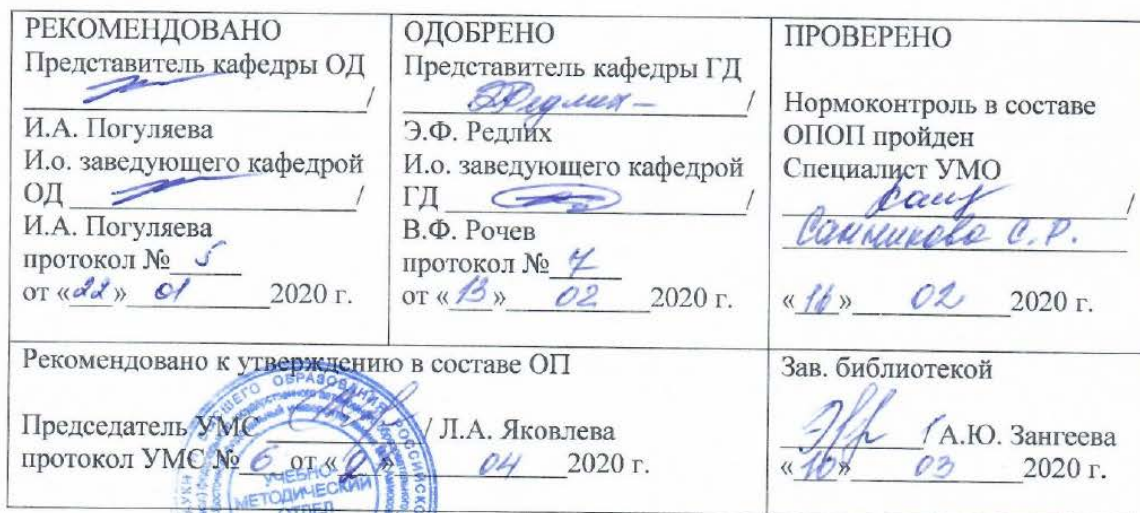 РЕКОМЕНДОВАНО
Представитель кафедры ОД
/
И.А. Погуляева
И.о. заведующего кафедрой
ОД /
И.А. Погуляева
протокол № 5
от «22» 01 2020 г.
ОДОБРЕНО
Представитель кафедры ГД
ЭРедлих /
Э.Ф. Редлих
И.о. заведующего кафедрой
ГД /
В.Ф. Рочев
протокол № 7
от «13» 02 2020 г.
ПРОВЕРЕНО
Нормоконтроль в составе
ОПОП пройден
Специалист УМО
/
Санникова С.Р.
«16» 02 2020 г.
Рекомендовано к утверждению в составе ОП
Председатель УМС / Л.А. Яковлева
протокол УМС № 6 от «9» 04 2020 г.
ВЫСШЕГО ОБРАЗОВАНИЯ
УЧЕБНО-
МЕТОДИЧЕСКИЙ
ОТДЕЛ
Зав. библиотекой
/ А.Ю. Зангеева
«10» 03 2020 г.